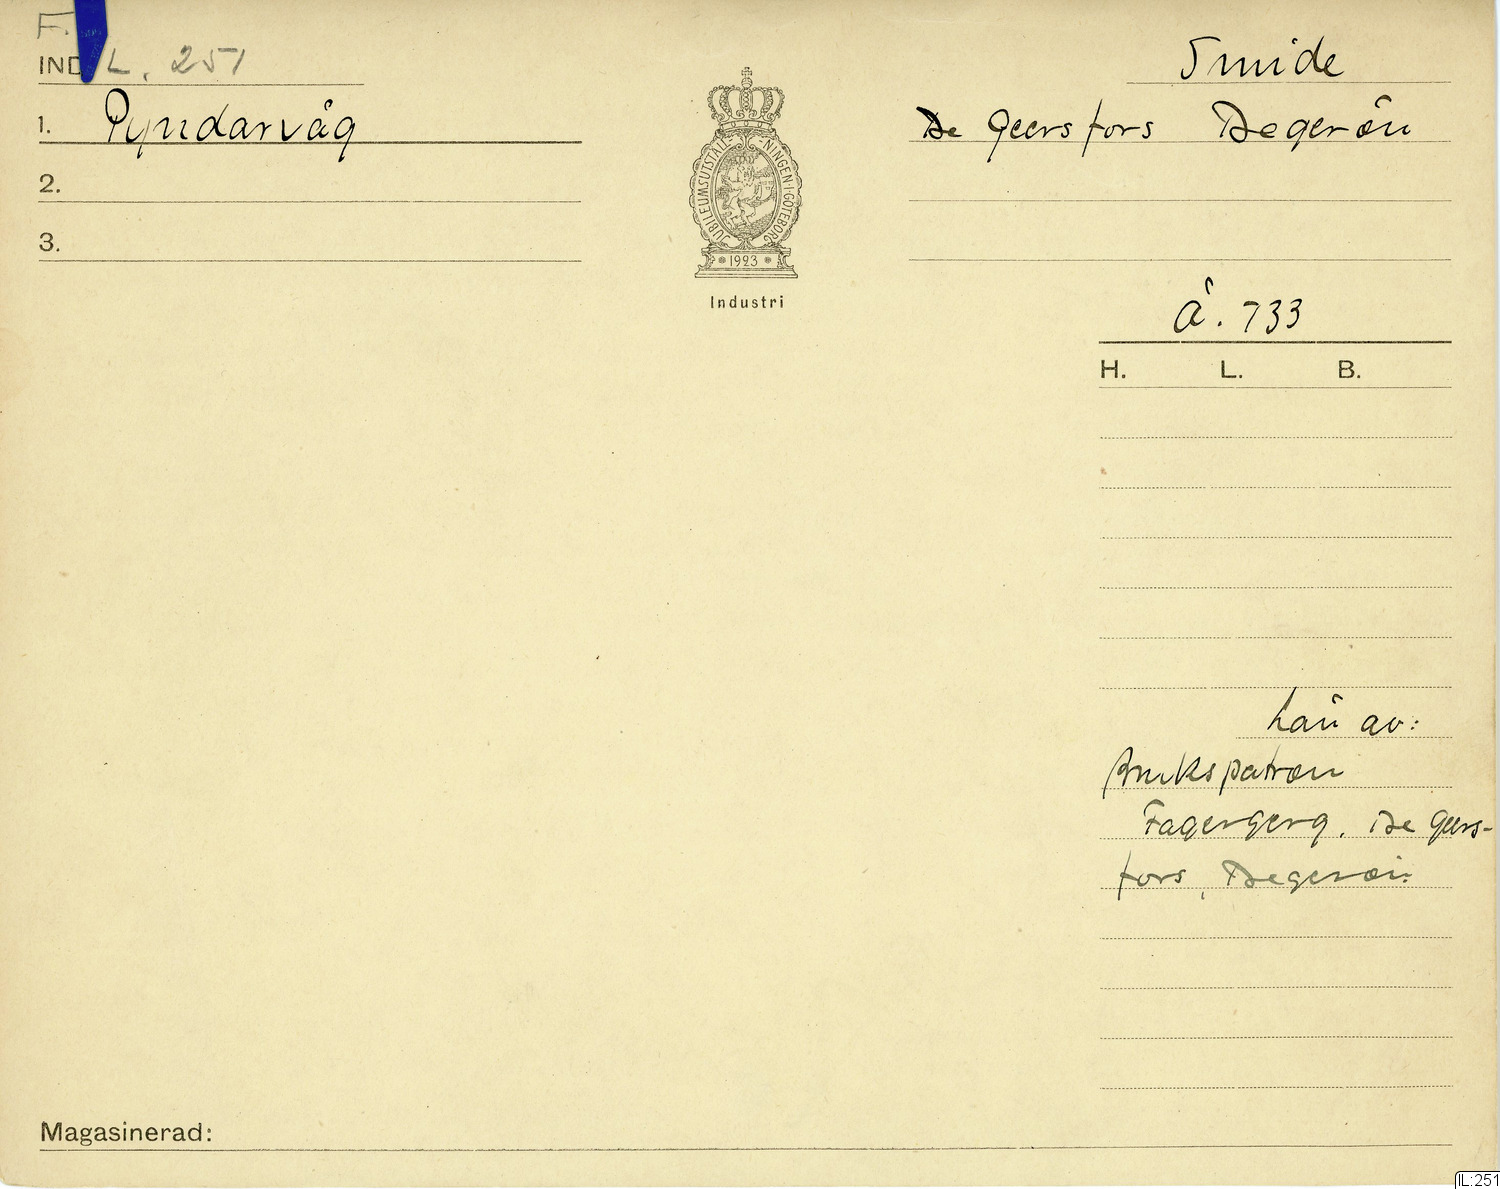 F.
IND L. 251
Smide
1. Pyndarvåg
De Geersfors Degerön
2.
3.
JUBILEUMSUTSTÄLLNINGEN I GÖTEBORG
1923
Industri
Å. 733
H. L. B.
Lån av:
Brukspatron
Fagergerg, De Geers-
fors, Degerön
Magasinerad:
IL:251